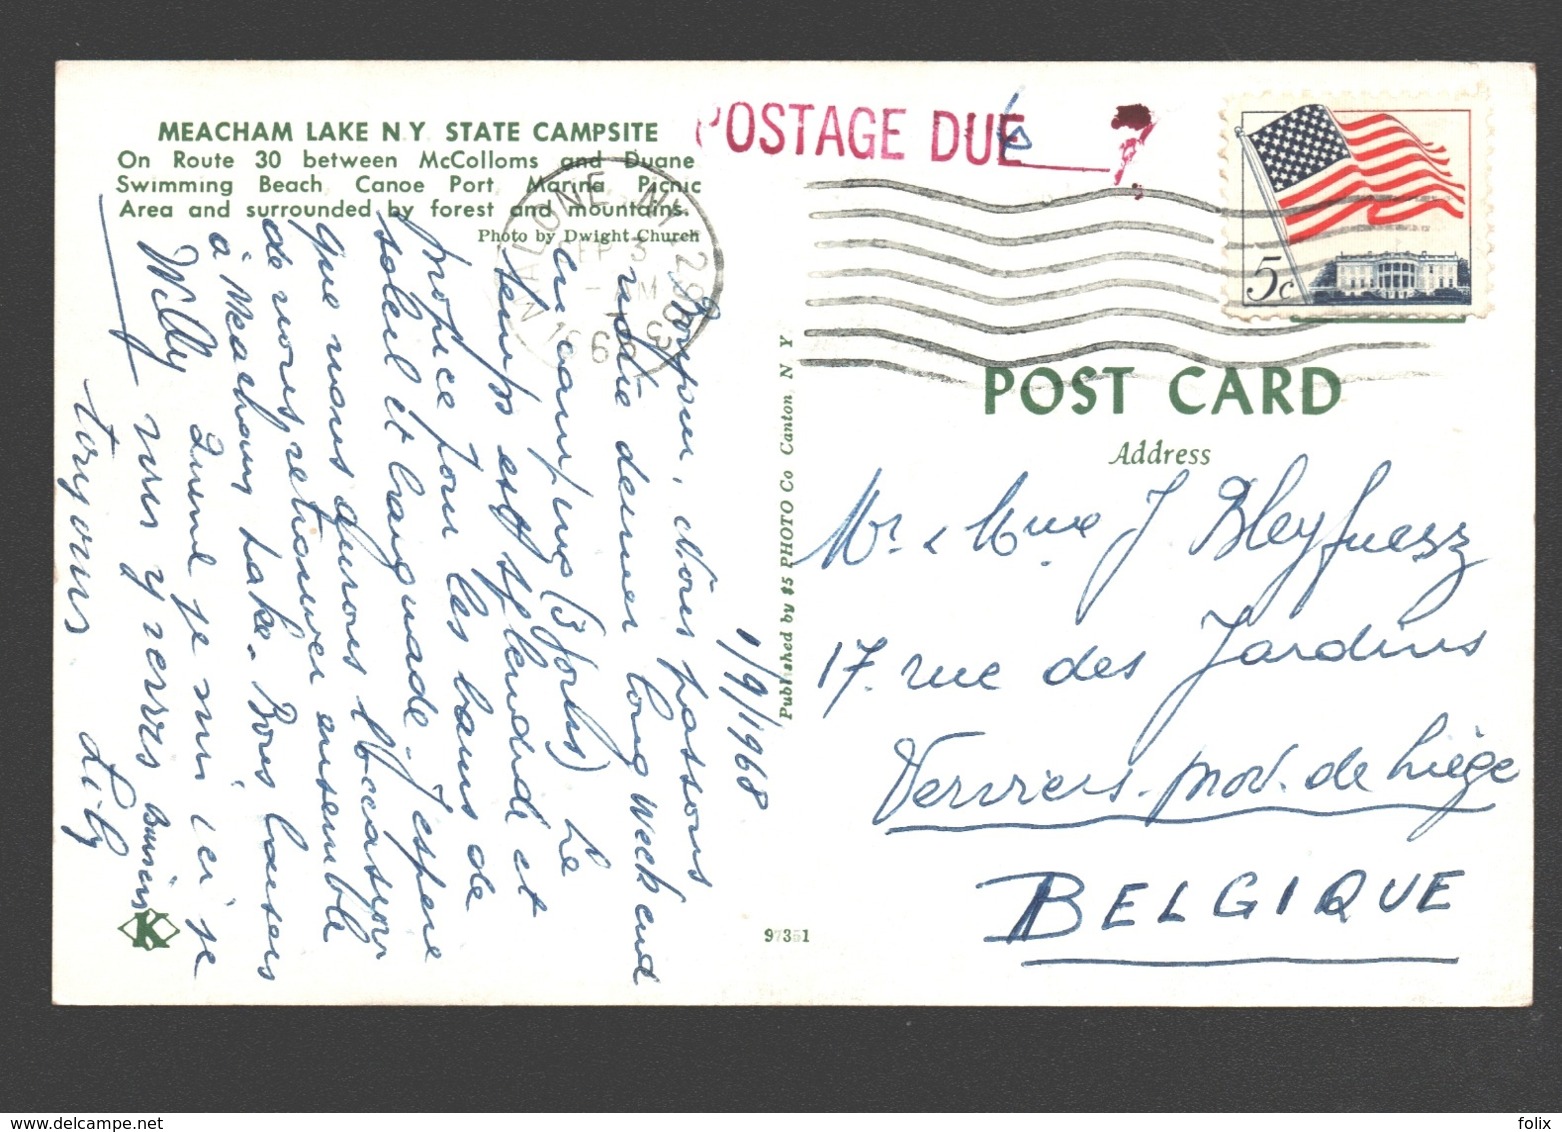 MEACHAM LAKE N.Y. STATE CAMPSITE
On Route 30 between McColloms and Duane
Swimming Beach Canoe Port Marina Picnic
Area and surrounded by forest and mountains.
Photo by Dwight Church
POSTAGE DUE
MALONE N.Y. 12953
SEP 3
1968
5c
POST CARD
Address
Mr & Mme J Bleyfuesz
17. rue des Jardins
Verviers. prov. de Liège
BELGIQUE
Published by #5 PHOTO Co Canton. N Y
97351
K
1/9/1968
Nous passons
notre dernier long week end
en camping (3 jours) Le
temps est splendide et
propice pour les bains de
soleil et baignade. J'espère
que nous aurons l'occasion
de nous retrouver ensemble
à Meacham Lake. Bons baisers
Quand je suis ici je
Willy
toujours Lily